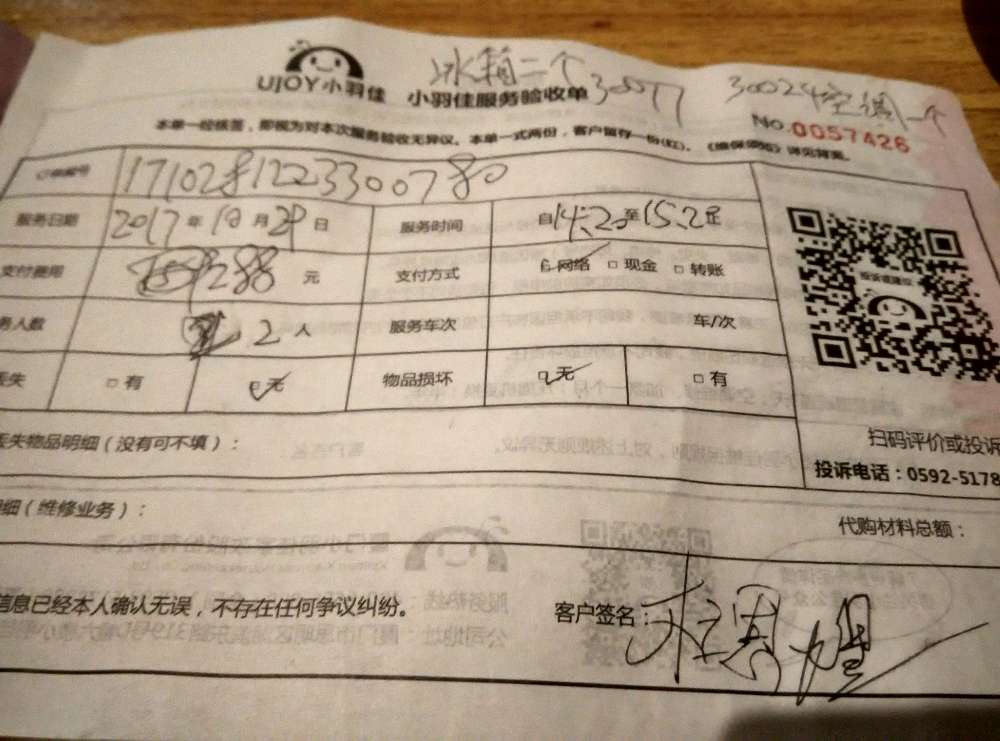 冰箱二个 30577 30024空调一个
UJOY小羽佳 小羽佳服务验收单
No.0057426
本单一经核签,即视为对本次服务验收无异议。本单一式两份,客户留存一份(红)。《维保须知》详见背面。
订单编号 1710281223300780
服务日期 2017年10月29日 服务时间 自14:20至15:2
支付费用 288元 支付方式 网络 现金 转账
务人数 2人 服务车次 车/次
丢失 有 无 物品损坏 无 有
投诉或建议
丢失物品明细(没有可不填):
扫码评价或投诉
投诉电话:0592-5178
明细(维修业务):
代购材料总额:
信息已经本人确认无误,不存在任何争议纠纷。
客户签名: